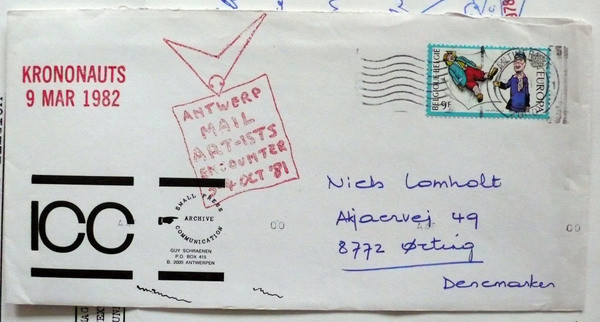 KRONONAUTS
9 MAR 1982
ANTWERP
MAIL
ART-ISTS
ENCOUNTER
4 OCT '81
BELGIQUE-BELGIE
9F
EUROPA
ICC
SMALL PRESS
ARCHIVE
COMMUNICATION
GUY SCHRAENEN
P.O. BOX 415
B. 2000 ANTWERPEN
Niels Lomholt
Akjaervej 49
8772 Ørting
Denemarken